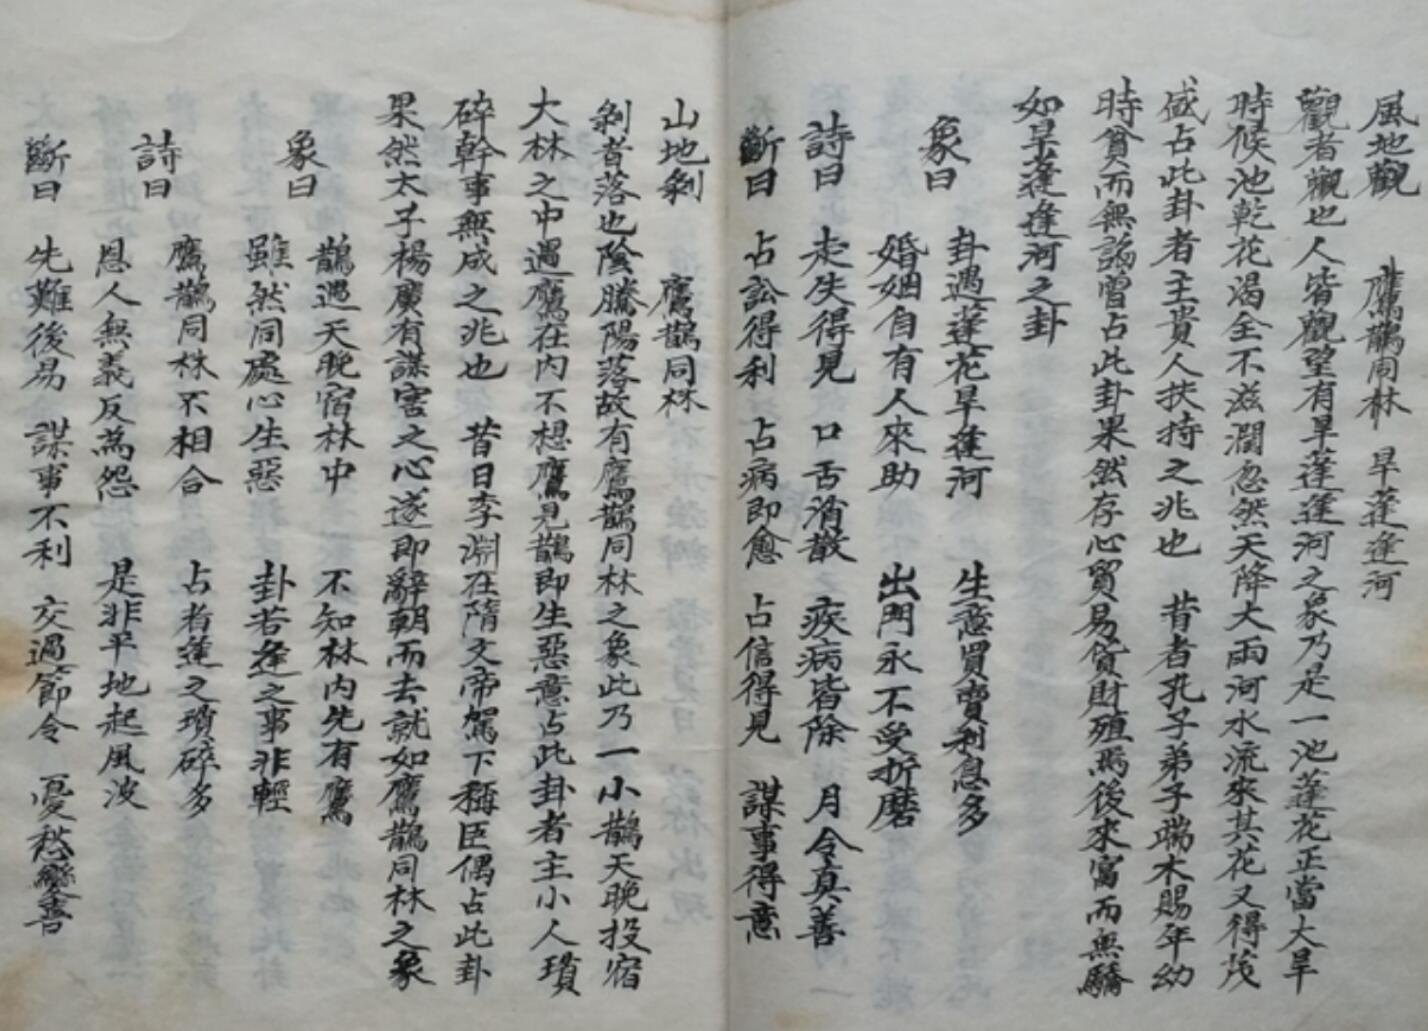 風地觀 鷹鵲同林 旱蓮逢河
觀者觀也人皆觀望有旱蓮逢河之象乃是一池蓮花正當大旱
時候池乾花渴全不滋潤忽然天降大雨河水流來其花又得茂
盛占此卦者主貴人扶持之兆也 昔者孔子弟子端木賜年幼
時貧而無諂曾占此卦果然存心貿易貨財殖焉後來富而無驕
如旱蓬逢河之卦
象曰 卦遇蓮花旱逢河 生意買賣利息多
婚姻自有人來助 出門永不受折磨
詩曰 走失得見 口舌消散 疾病皆除 月令真善
斷曰 占訟得利 占病即愈 占信得見 謀事得意
山地剝 鷹鵲同林
剝者落也陰騰陽落故有鷹鵲同林之象此乃一小鵲天晚投宿
大林之中遇鷹在內不想鷹見鵲即生惡意占此卦者主小人瑣
碎幹事無成之兆也 昔日李淵在隋文帝駕下稱臣偶占此卦
果然太子楊廣有謀害之心遂即辭朝而去就如鷹鵲同林之象
象曰 鵲遇天晚宿林中 不知林內先有鷹
雖然同處心生惡 卦若逢之事非輕
詩曰 鷹鵲同林不相合 占者逢之瑣碎多
恩人無義反為怨 是非平地起風波
斷曰 先難後易 謀事不利 交過節令 憂愁變喜